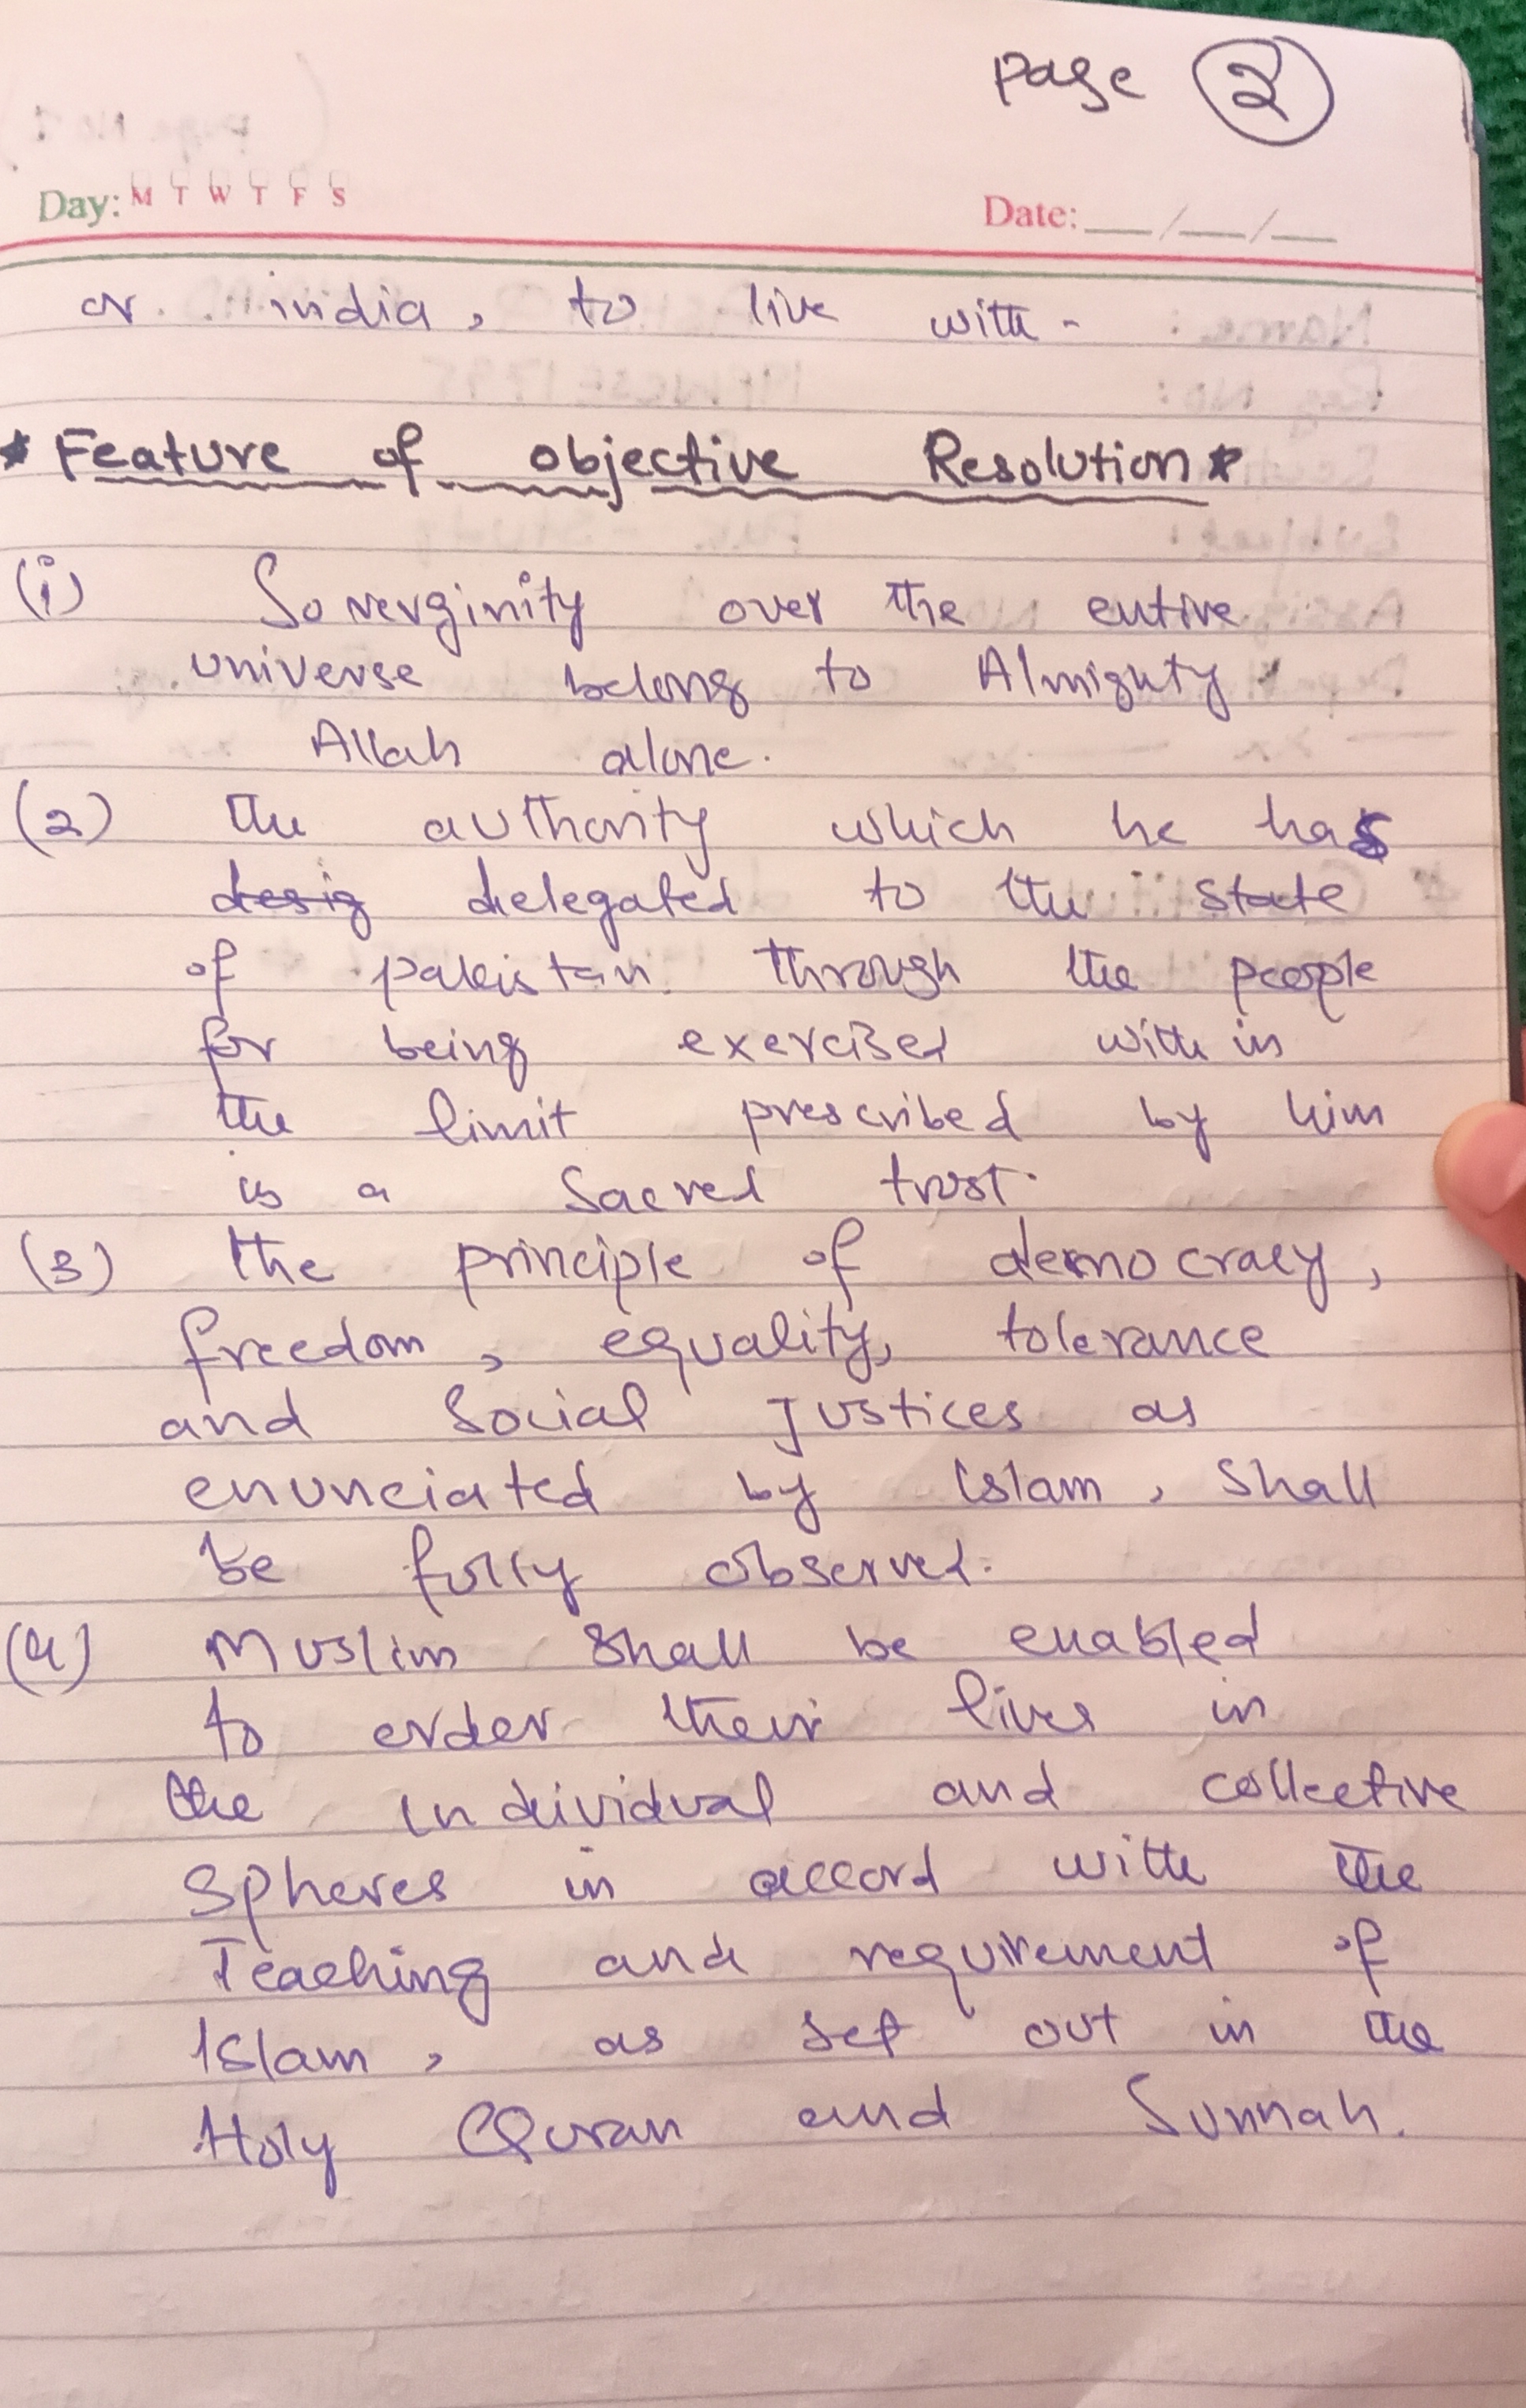 Page 2
Day: M T W T F S
Date: __/__/__
or india, to live with.
* Feature of objective Resolution *
(i) Soverginity over the entire
universe belong to Almighty
Allah alone.
(2) the authority which he has
desig delegated to the state
of pakistan through the people
for being exercised with in
the limit prescribed by him
is a Sacred trust.
(3) the principle of democracy,
freedom, equality, tolerance
and Social Justices as
enunciated by Islam, Shall
be fully observed.
(4) Muslim Shall be enabled
to order their lives in
the individual and collective
Spheres in accord with the
Teaching and requirement of
Islam, as set out in the
Holy Quran and Sunnah.